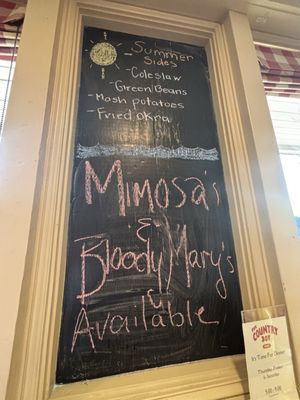 Summer
Sides
- Coleslaw
- Green Beans
- Mash potatoes
- Fried Okra
Mimosa's
&
Bloody Mary's
Available
THE
COUNTRY
In Time For Dinner
Thursday